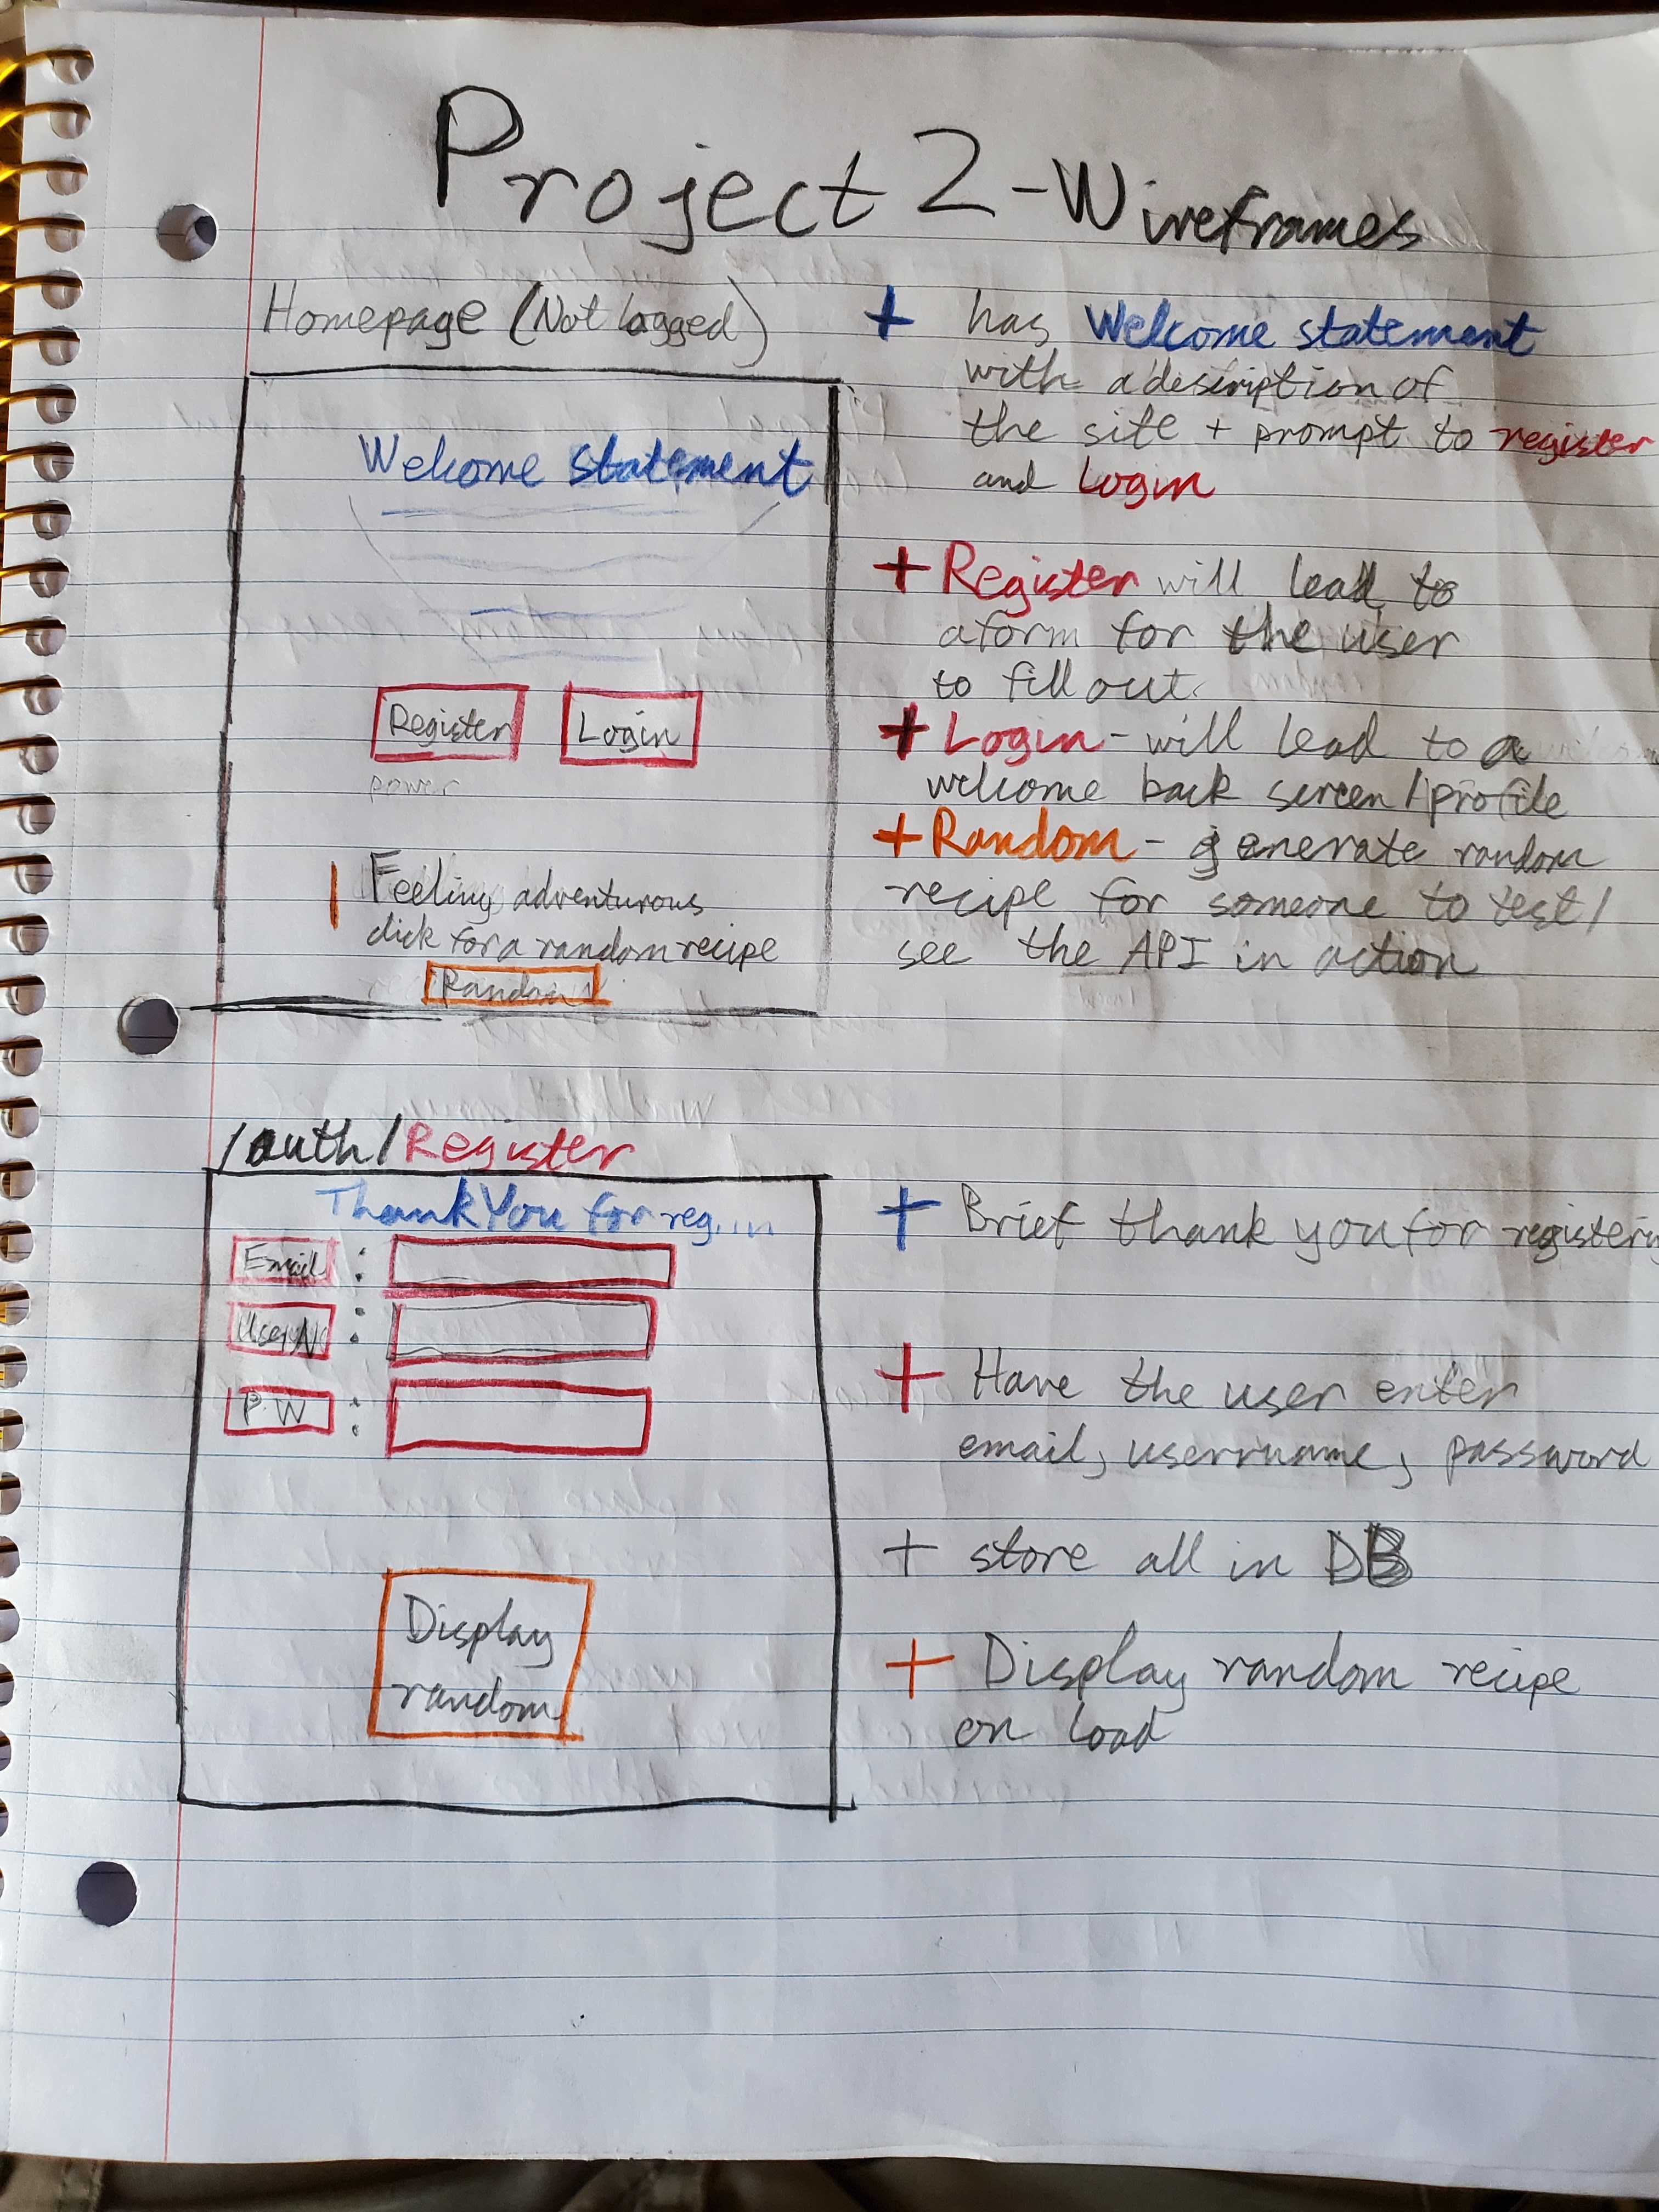 Project 2 - Wireframes
Homepage (Not logged)
Welcome statement
Register
Login
power
Feeling adventurous
click for a random recipe
Random
+ has Welcome statement
with a description of
the site + prompt to register
and Login
+ Register will lead to
a form for the user
to fill out.
+ Login - will lead to a
welcome back screen / profile
+ Random - generate random
recipe for someone to test /
see the API in action
/auth/Register
Thank You for reg...in
Email :
UserN :
P.W :
Display
random
+ Brief thank you for registering
+ Have the user enter
email, username, password
+ store all in DB
+ Display random recipe
on load